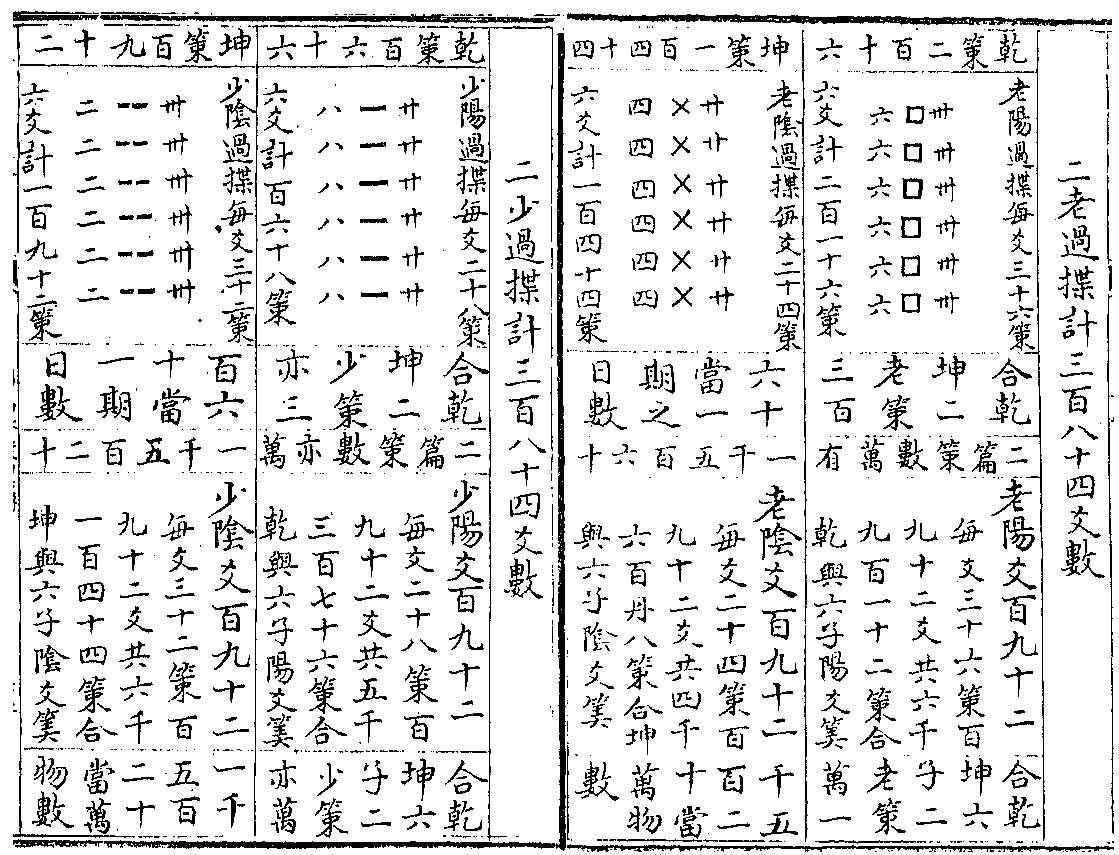 二老過揲計三百八十四爻數
乾策二百十六
老陽過揲每爻三十六策
卌卌卌卌卌卌
□□□□□□
六六六六六六
六爻計二百一十六策
坤策一百四十四
老陰過揲每爻二十四策
廿廿廿廿廿廿
××××××
四四四四四四
六爻計一百四十四策
合乾
坤二
老策
三百
六十
當一
期之
日數
二篇策數萬有
一千五百六十
老陽爻百九十二
每爻三十六策百
九十二爻共六千
九百一十二策合
乾與六子陽爻筭
老陰爻百九十二
每爻二十四策百
九十二爻共四千
六百丹八策合坤
與六子陰爻筭
合乾
坤六
子二
老策
萬一
千五
百二
十當
萬物
數
二少過揲計三百八十四爻數
乾策百六十六
少陽過揲每爻二十八策
廿廿廿廿廿廿
八八八八八八
六爻計百六十八策
坤策百九十二
少陰過揲每爻三十二策
卅卅卅卅卅卅
二二二二二二
六爻計一百九十二策
合乾
坤二
少策
亦三
百六
十當
一期
日數
二篇策數亦萬
一千五百二十
少陽爻百九十二
每爻二十八策百
九十二爻共五千
三百七十六策合
乾與六子陽爻筭
少陰爻百九十二
每爻三十二策百
九十二爻共六千
一百四十四策合
坤與六子陰爻筭
合乾
坤六
子二
少策
亦萬
一千
五百
二十
當萬
物數